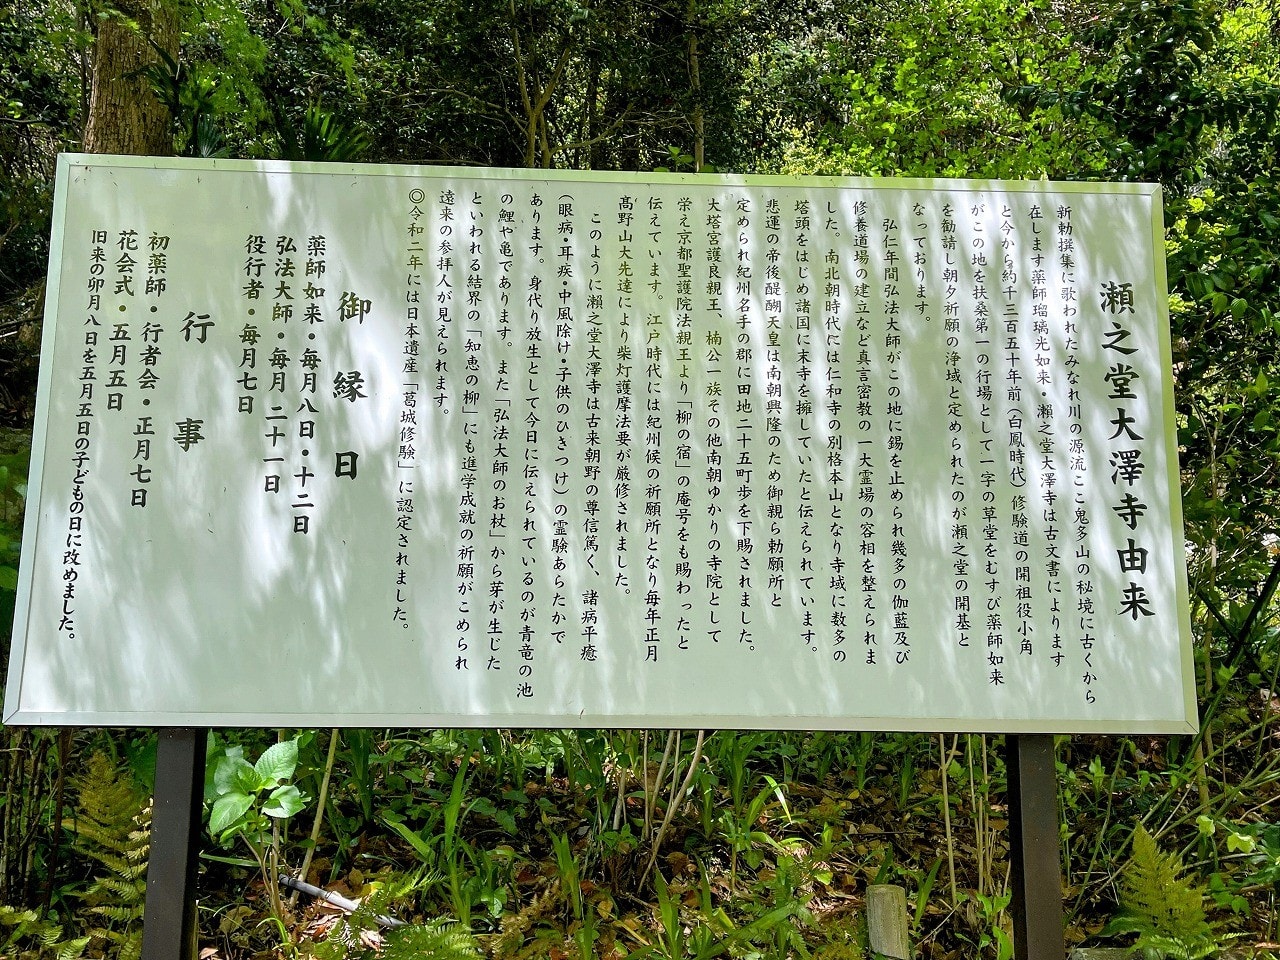 瀬之堂大澤寺由来
新勅撰集に歌われたみなれ川の源流ここ鬼多山の秘境に古くから
在します薬師瑠璃光如来・瀬之堂大澤寺は古文書によります
と今から約千三百五十年前(白鳳時代)修験道の開祖役小角
がこの地を扶桑第一の行場として一字の草堂をむすび薬師如来
を勧請し朝夕祈願の浄域と定められたのが瀬之堂の開基と
なっております。
弘仁年間弘法大師がこの地に錫を止められ幾多の伽藍及び
修養道場の建立など真言密教の一大霊場の容相を整えられま
した。南北朝時代には仁和寺の別格本山となり寺域に数多の
塔頭をはじめ諸国に末寺を擁していたと伝えられています。
悲運の帝後醍醐天皇は南朝興隆のため御親ら勅願所と
定められ紀州名手の郡に田地二十五町歩を下賜されました。
大塔宮護良親王、楠公一族その他南朝ゆかりの寺院として
栄え京都聖護院法親王より「柳の宿」の庵号をも賜わったと
伝えています。江戸時代には紀州候の祈願所となり毎年正月
髙野山大先達により柴灯護摩法要が厳修されました。
このように瀬之堂大澤寺は古来朝野の尊信篤く、諸病平癒
(眼病・耳疾・中風除け・子供のひきつけ)の霊験あらたかで
あります。身代り放生として今日に伝えられているのが青竜の池
の鯉や亀であります。また「弘法大師のお杖」から芽が生じた
といわれる結界の「知恵の柳」にも進学成就の祈願がこめられ
遠来の参拝人が見えられます。
◎令和二年には日本遺産「葛城修験」に認定されました。
御縁日
薬師如来・毎月八日・十二日
弘法大師・毎月二十一日
役行者・毎月七日
行事
初薬師・行者会・正月七日
花会式・五月五日
旧来の卯月八日を五月五日の子どもの日に改めました。